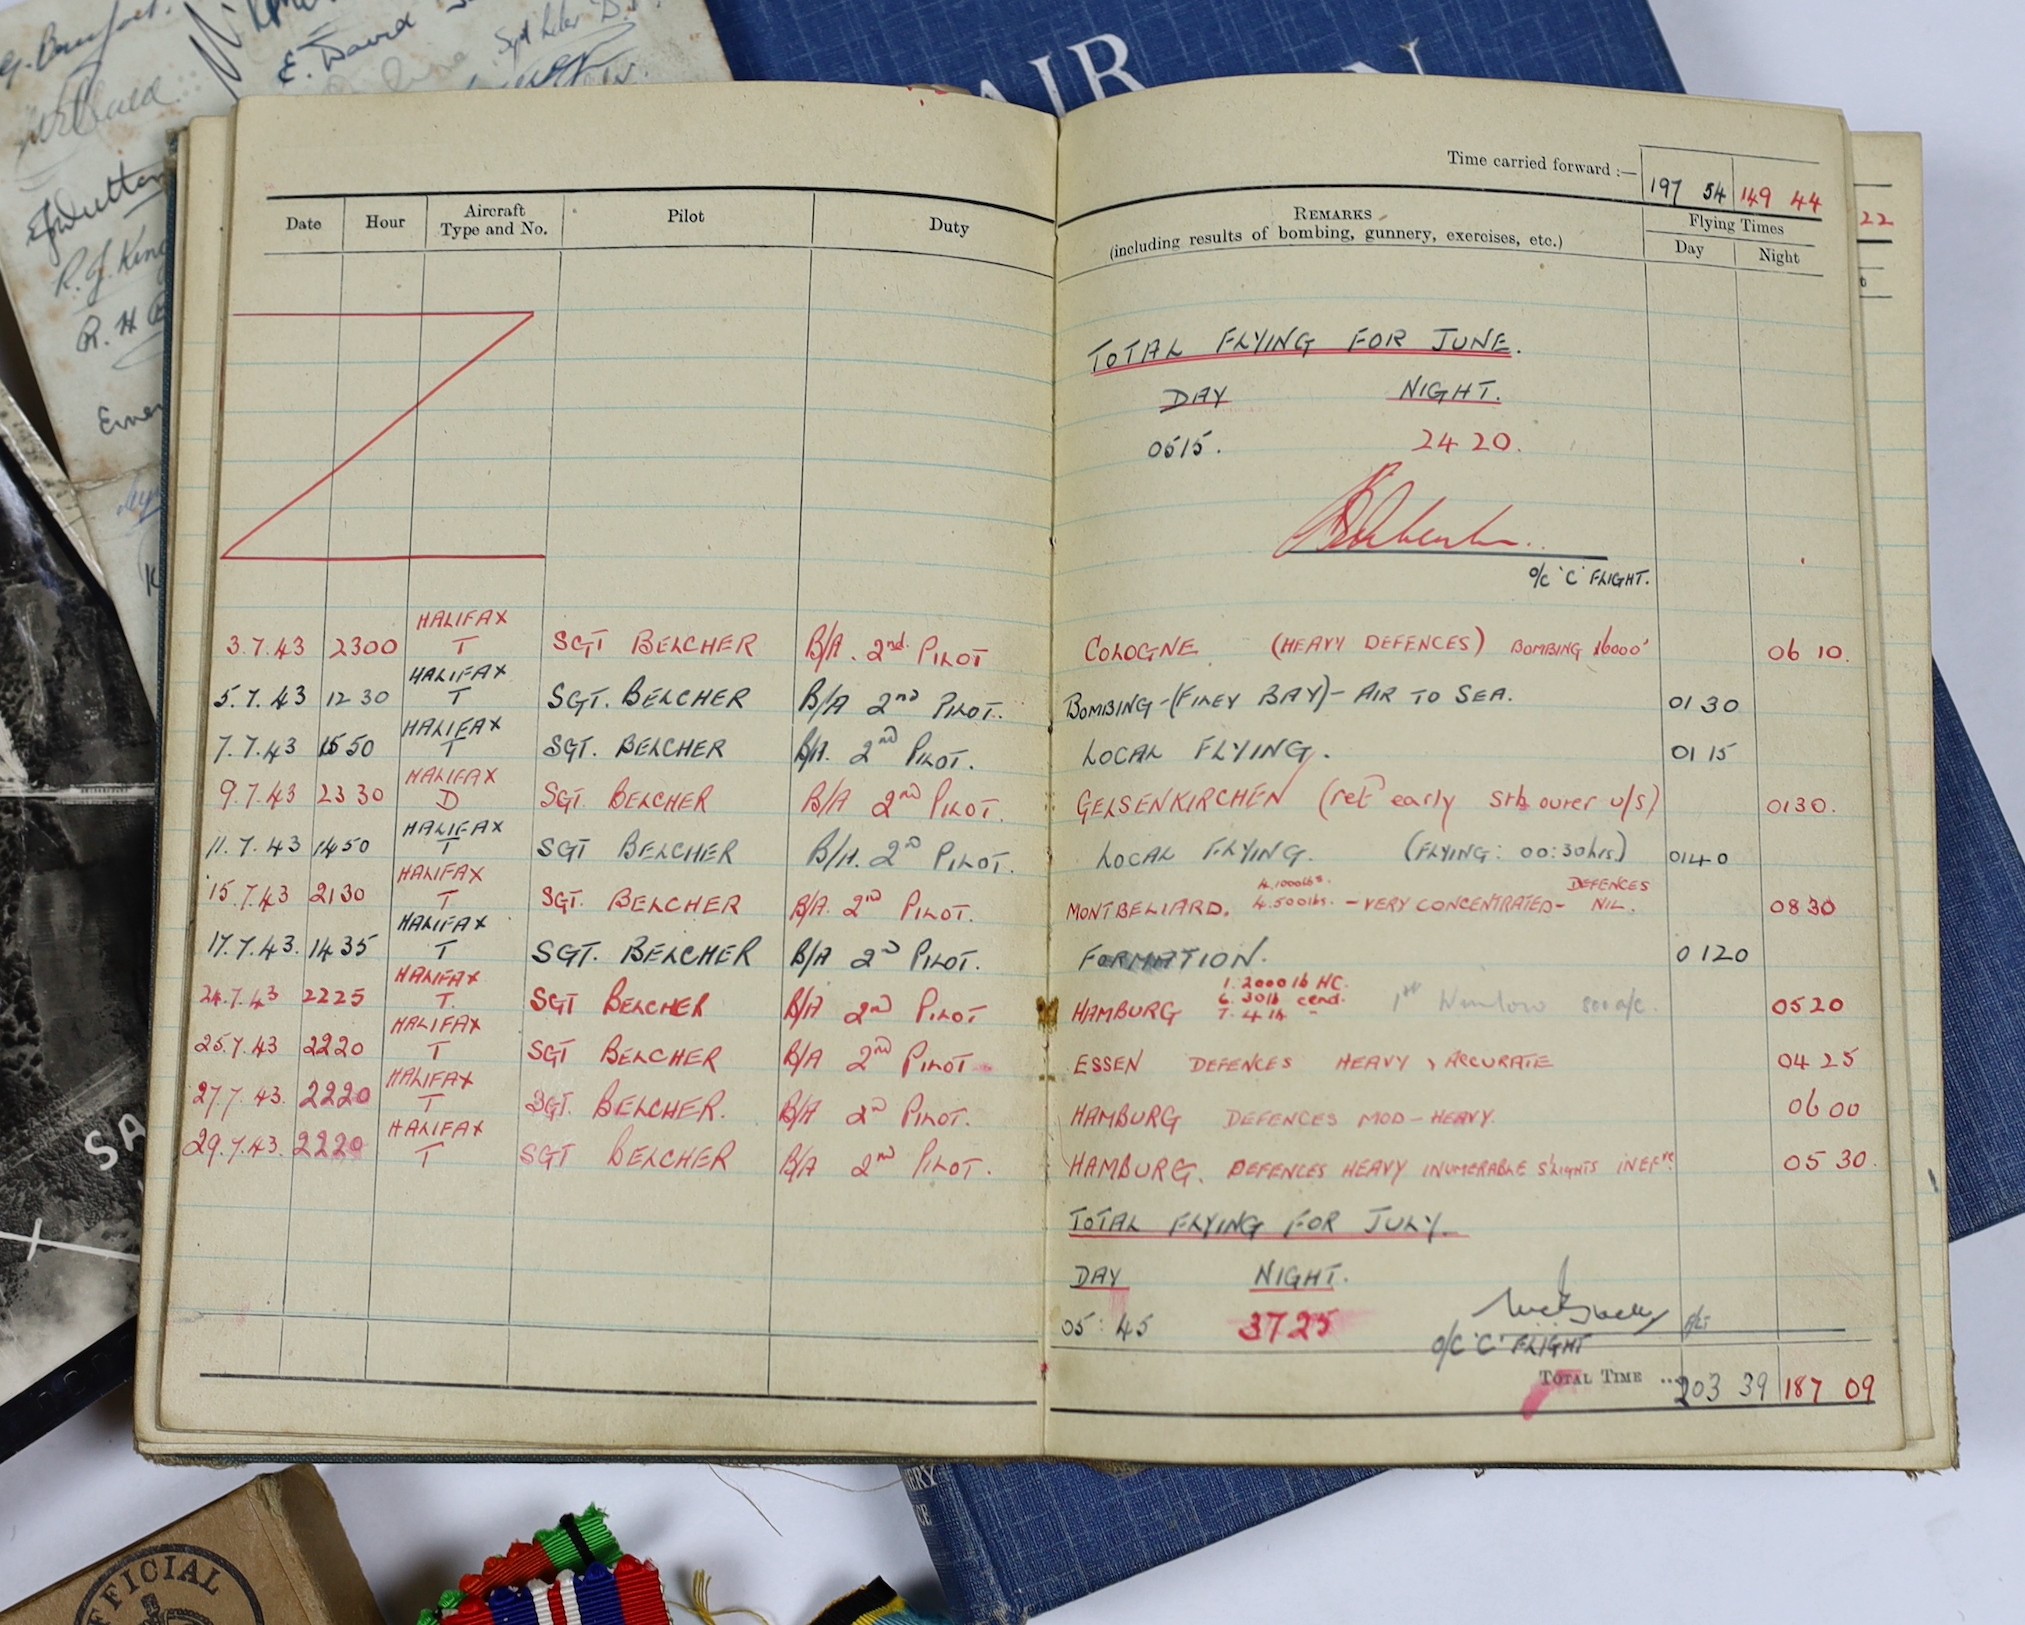 E. David
R. G. King
R. H
AIR
Time carried forward :—
197 54 149 44
22
Date Hour Aircraft Type and No. Pilot Duty
REMARKS (including results of bombing, gunnery, exercises, etc.) Flying Times Day Night
TOTAL FLYING FOR JUNE.
DAY NIGHT.
0515. 24 20.
O/C 'C' FLIGHT.
3.7.43 2300 HALIFAX T SGT BELCHER B/A. 2nd. PILOT COLOGNE (HEAVY DEFENCES) BOMBING 16000' 06 10.
5.7.43 12 30 HALIFAX T SGT. BELCHER B/A 2nd PILOT. BOMBING-(FILEY BAY)- AIR TO SEA. 01 30
7.7.43 1550 HALIFAX T SGT. BELCHER B/A. 2nd PILOT. LOCAL FLYING. 01 15
9.7.43 23 30 HALIFAX D SGT. BELCHER B/A 2nd PILOT. GELSENKIRCHEN (retd early Stb outer u/s) 0130.
11.7.43 1450 HALIFAX T SGT BELCHER B/A. 2D PILOT. LOCAL FLYING. (FLYING: 00:30hrs) 0140
15.7.43 2130 HALIFAX T SGT. BELCHER B/A. 2ND PILOT. MONTBELIARD. 4.1000lbs. 4.500lbs. - VERY CONCENTRATED- DEFENCES NIL. 0830
17.7.43. 1435 HALIFAX T SGT. BELCHER B/A 2D PILOT. FORMATION. 0120
24.7.43 2225 HALIFAX T. SGT BELCHER B/A 2ND PILOT HAMBURG 1. 2000 lb HC. 6. 30lb cend. 7. 4 lb - 1st Window 0520
25.7.43 2220 HALIFAX T SGT BELCHER B/A 2ND PILOT ESSEN DEFENCES HEAVY, ACCURATE 04 25
27.7.43. 2220 HALIFAX T SGT. BELCHER. B/A 2D PILOT. HAMBURG DEFENCES MOD-HEAVY. 06 00
29.7.43. 2220 HALIFAX T SGT BELCHER B/A 2ND PILOT. HAMBURG. DEFENCES HEAVY INUMERABLE S'LIGHTS INEFve. 05 30.
TOTAL FLYING FOR JULY.
DAY NIGHT.
05:45 3725
F/Lt
O/C 'C' FLIGHT
TOTAL TIME ... 203 39 187 09
SA
OFFICIAL